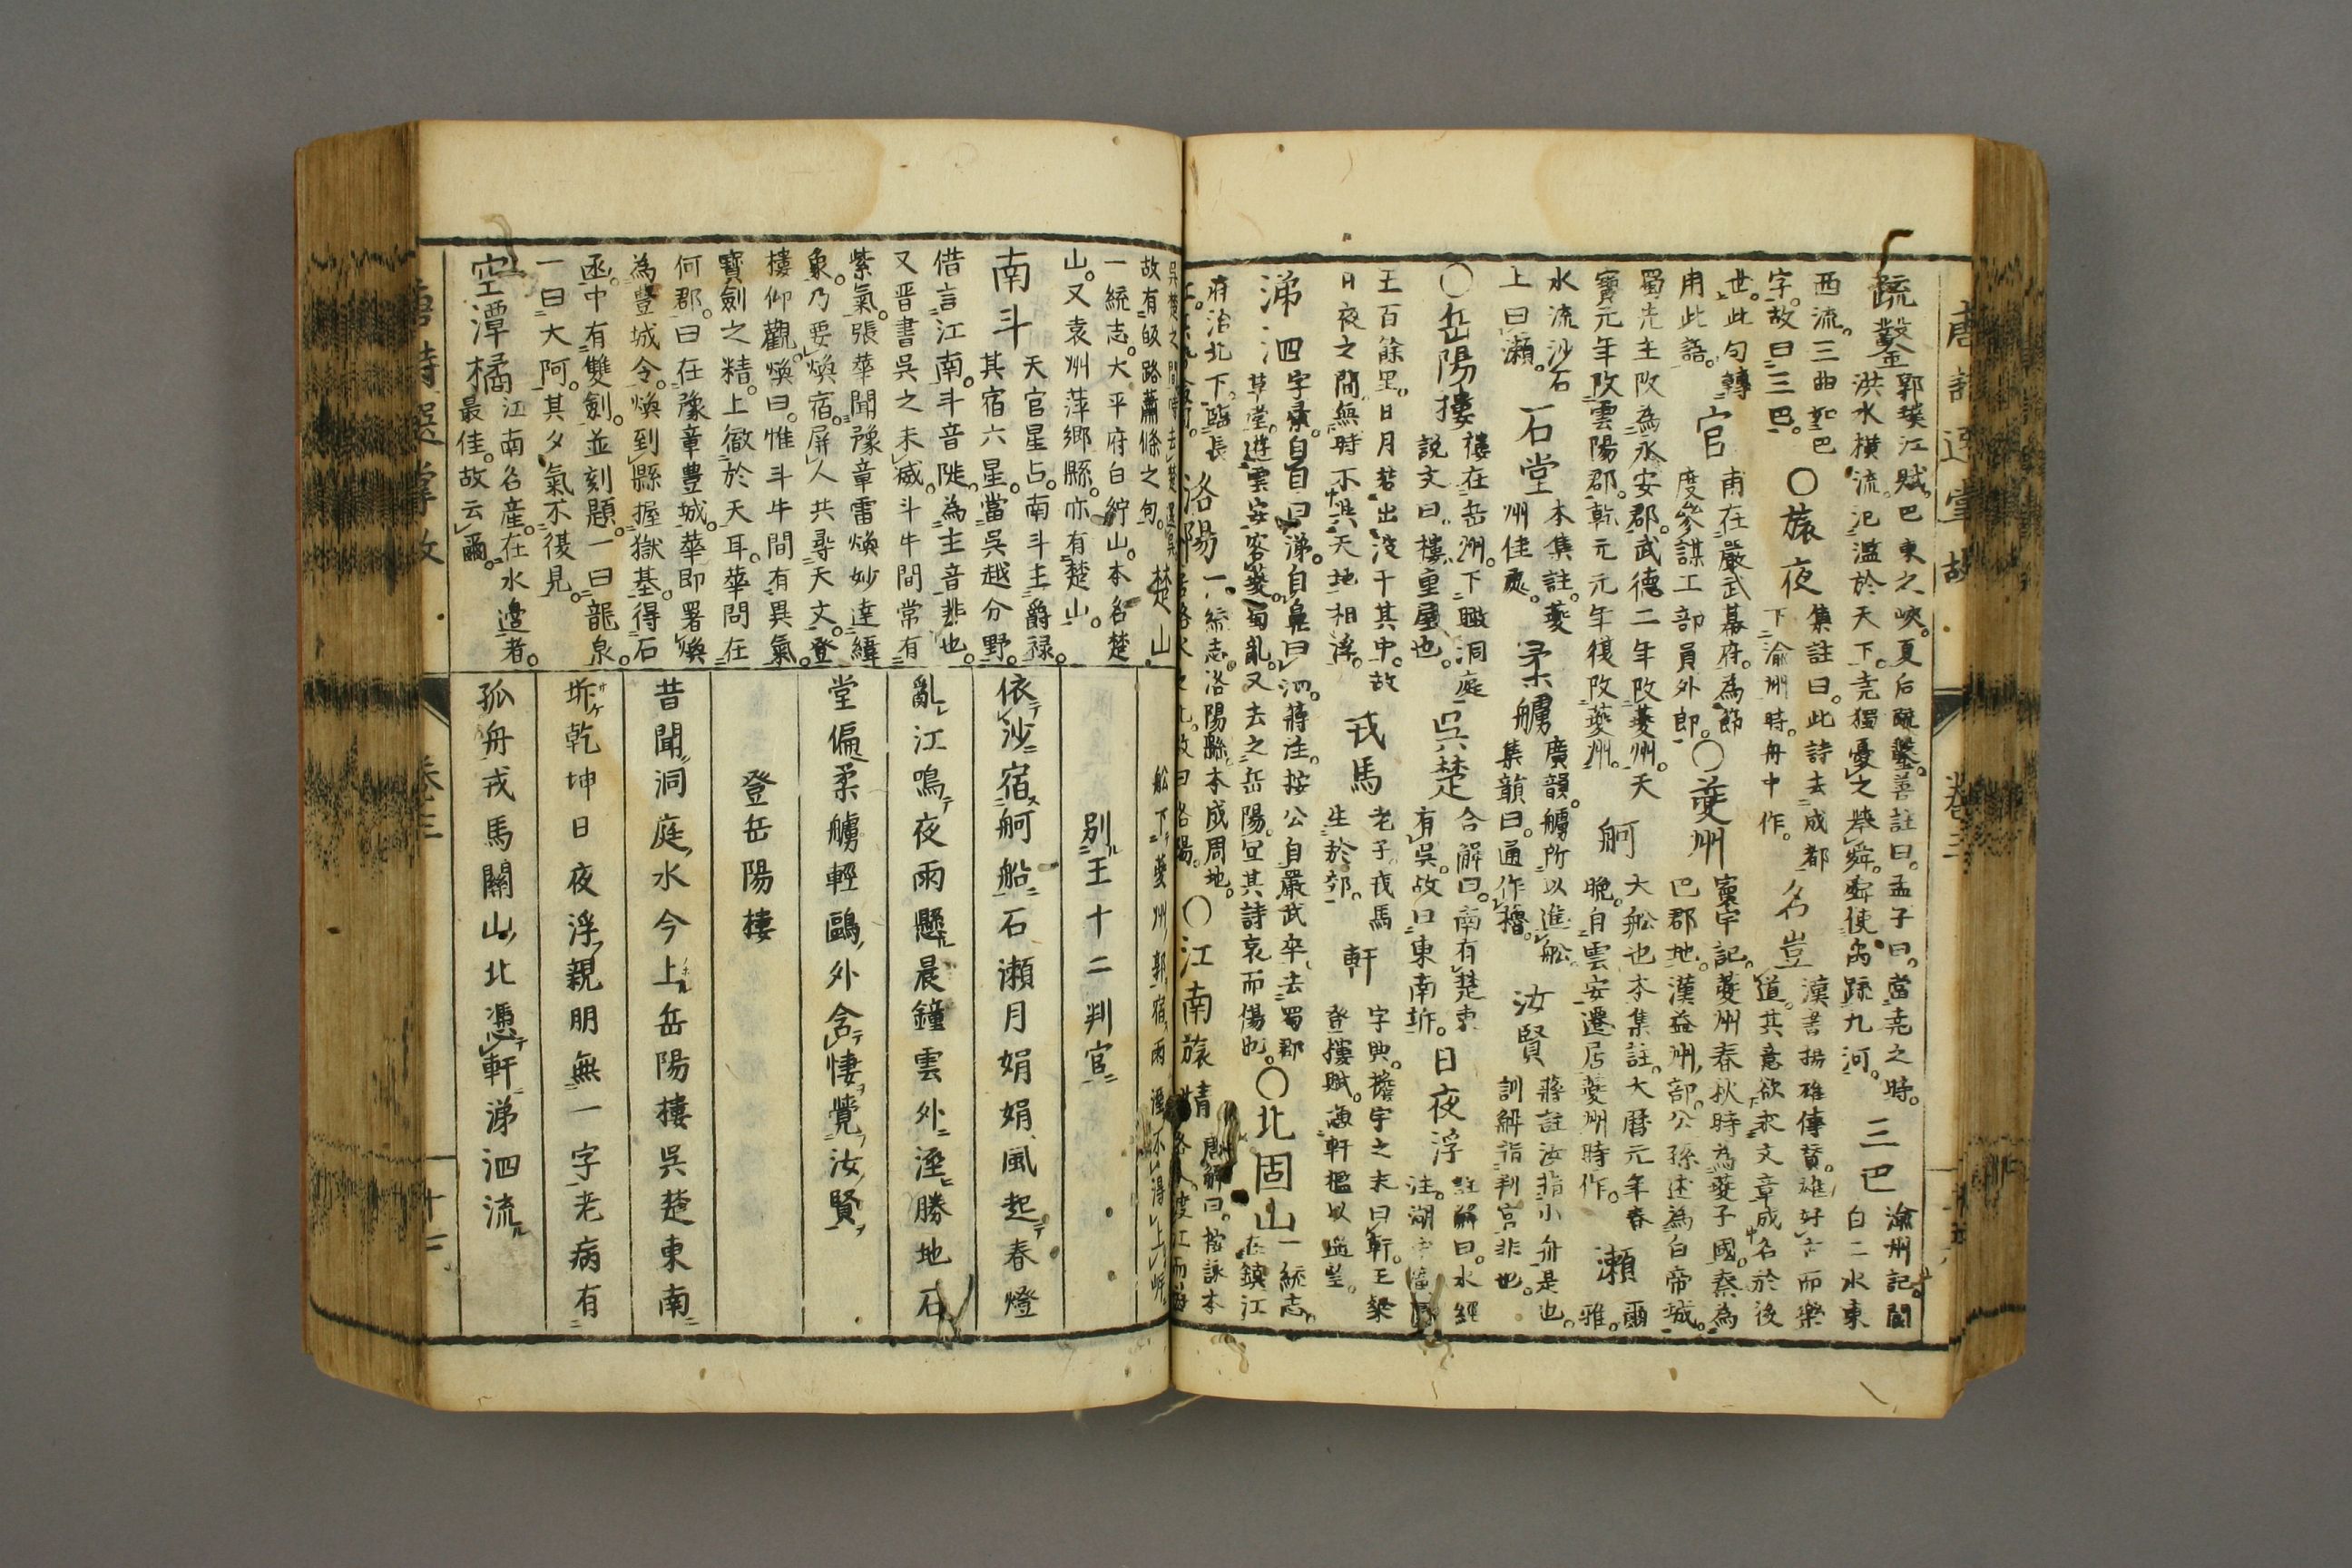 疏鑿 郭璞江賦。巴東之峽。夏后疏鑿。善註曰。孟子曰。當尭之時。
洪水橫流。氾濫於天下。尭獨憂之。舉舜。舜使禹疏九河。
三巴 渝州記。閬
白二水東
西流。三曲如巴
字。故曰三巴。
○旅夜 集註曰。此詩去成都
下渝州時。舟中作。
名豈 漢書揚雄傳賛。雄好古而樂
道。其意欲求文章成名於後
世。此句轉
用此語。
官 甫在嚴武幕府。為節
度參謀工部員外郎。
○夔州 寰宇記。夔州春秋時為夔子國。秦為
巴郡地。漢益州部。公孫述為白帝城。
蜀先主改為永安郡。武德二年改夔州。天
寶元年改雲陽郡。乾元元年復改夔州。
舸 大船也。本集註。大曆元年春
晚。自雲安遷居夔州時作。
瀬 爾
雅。
水流沙石
上曰瀬。
石堂 本集註。夔
州佳處。
柔艣 廣韻。艣所以進船。
集韻曰。通作櫓。
汝賢 蔣註汝指小舟是也。
訓解指判官非也。
○岳陽樓 樓在岳州。下瞰洞庭
説文曰。樓重屋也。
吳楚 合解曰。南有楚東
有吳。故曰東南坼。
日夜浮 註解曰。水經
注。湖中
王百餘里。日月若出沒于其中。故
日夜之間。無時不與天地相浮。
戎馬 老子。戎馬
生於郊。
軒 字典。檐宇之末曰軒。王粲
登樓賦。憑軒檻以遥望。
涕泗 字彙。自目曰涕。自鼻曰泗。蔣註。按公自嚴武卒。去蜀郡
草堂。遊雲安客夔。蜀亂。又去之岳陽。宜其詩哀而傷也。
○北固山 一統志。
在鎮江
府治北。下臨長
江。
洛陽 一統志。洛陽縣。本成周地。
○江南旅情 唐解曰。按詠本
唐詩選掌故
卷三
船下夔州郭宿雨濕不得上岸
別王十二判官
依沙宿舸船石瀬月娟娟風起春燈
亂江鳴夜雨懸晨鐘雲外濕勝地石
堂偏柔艣輕鷗外含悽覺汝賢
登岳陽樓
昔聞洞庭水今上岳陽樓吳楚東南
坼乾坤日夜浮親朋無一字老病有
孤舟戎馬關山北憑軒涕泗流
吳楚之間
故有皈路蕭條之句。
楚山
一統志。大平府白紵山。本名楚
山。又袁州萍鄉縣。亦有楚山。
南斗 天官星占。南斗主爵禄。
其宿六星。當吳越分野。
借言江南。斗音陡。為主音非也。
又晋書吳之未滅。斗牛間常有
紫氣。張華聞豫章雷煥妙達緯
象。乃要煥宿。屏人共尋天文。登
樓仰觀。煥曰。惟斗牛間有異氣。
寶劍之精。上徹於天耳。華問在
何郡。曰在豫章豊城。華即署煥
為豊城令。煥到縣掘獄基。得石
函。中有雙劍。並刻題。一曰龍泉。
一曰大阿。其夕氣不復見。
空潭橘 江南名産。在水邊者。
最佳。故云爾。
唐詩選掌故
卷三